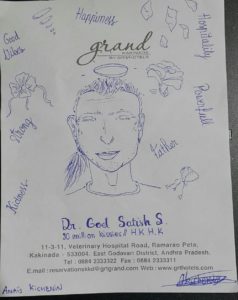 Happiness
Hospitality
Good
Vibes
grand
Powerful
Strong
Father
Kidness
Dr. God Satish S
30 million kisses! H.K.H.K
11-3-11, Veterinary Hospital Road, Ramarao Peta,
Kakinada - 533004. East Godavari District, Andhra Pradesh.
Tel : 0884 2333322 Fax : 0884 2333311
E.mail : reservationskkd@rgrtgrand.com Web : www.grthotels.com